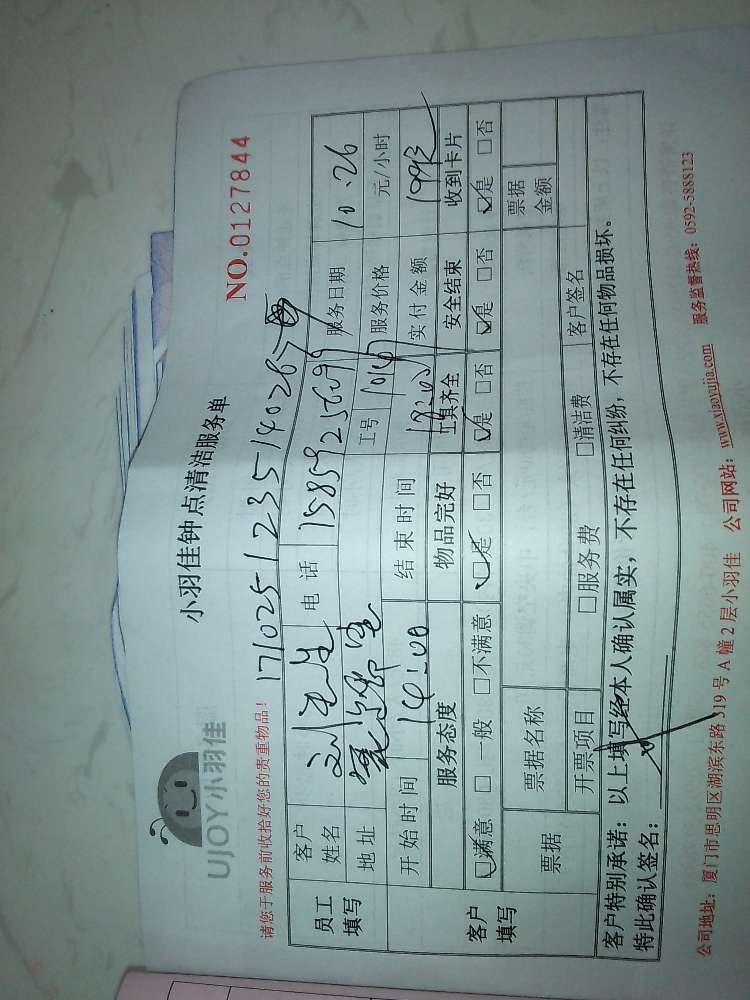 UJOY小羽佳
小羽佳钟点清洁服务单
NO.0127844
请您于服务前收拾好您的贵重物品！
171025123514026
员工填写
客户姓名 电话 服务日期 10.26
地址 工号 服务价格 元/小时
开始时间 14:00 结束时间 18:00 实付金额
客户填写
服务态度 物品完好 工具齐全 安全结束 收到卡片
☑满意 □一般 □不满意 ☑是 □否 ☑是 □否 ☑是 □否 ☑是 □否
票据 票据名称 票据金额
开票项目 □服务费 □清洁费 客户签名
客户特别承诺：以上填写经本人确认属实，不存在任何纠纷，不存在任何物品损坏。
特此确认签名：
公司地址：厦门市思明区湖滨东路319号A幢2层小羽佳 公司网站：www.xiaoyujia.com 服务监督热线：0592-5888123